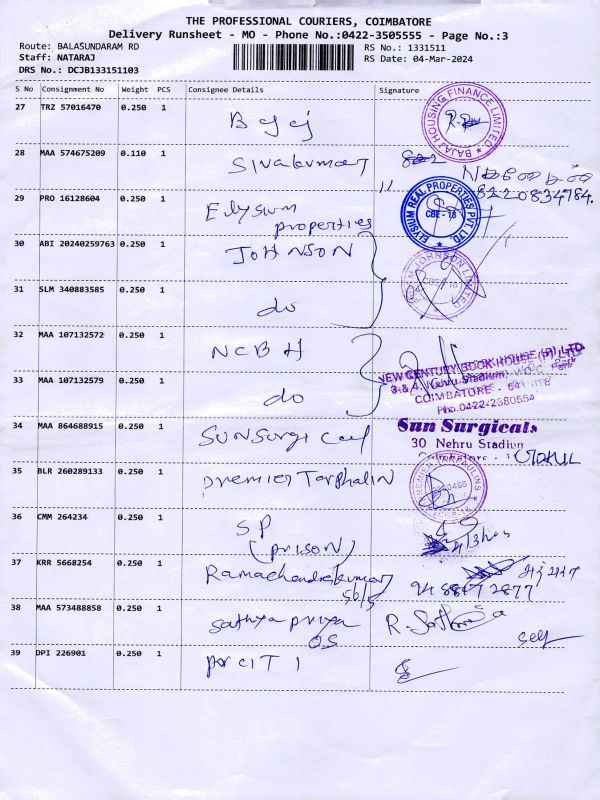 THE PROFESSIONAL COURIERS, COIMBATORE
Delivery Runsheet - MO - Phone No.:0422-3505555 - Page No.:3
Route: BALASUNDARAM RD
Staff: NATARAJ
DRS No.: DCJB133151103
RS No.: 1331511
RS Date: 04-Mar-2024
S No Consignment No Weight PCS Consignee Details Signature
27 TRZ 57016470 0.250 1 Bajaj
BAJAJ HOUSING FINANCE LIMITED
28 MAA 574675209 0.110 1 Sivakumar
8220834784.
29 PRO 16128604 0.250 1 Elysium
properties
ELYSIUM REAL PROPERTIES PVT. LTD.
CBE - 18
30 ABI 20240259763 0.250 1 JOHNSON
JOHNSON LIMITED
31 SLM 340883585 0.250 1 do
32 MAA 107132572 0.250 1 NCBH
NEW CENTURY BOOK HOUSE (P) LTD
33 MAA 107132579 0.250 1 do
COIMBATORE - 641 018
Ph:0422-2380554
34 MAA 864688915 0.250 1 Sun Surgical
Sun Surgicals
30 Nehru Stadium
Coimbatore - 
GOKUL
35 BLR 260289133 0.250 1 premier Tarphalin
PREMIER TARPAULINS
36 CMM 264234 0.250 1 SP
(prison)
37 KRR 5668254 0.250 1 Ramachandrakumar
38 MAA 573488858 0.250 1 Sathya priya
R. Sathya
self
39 DPI 226901 0.250 1 por CIT 1